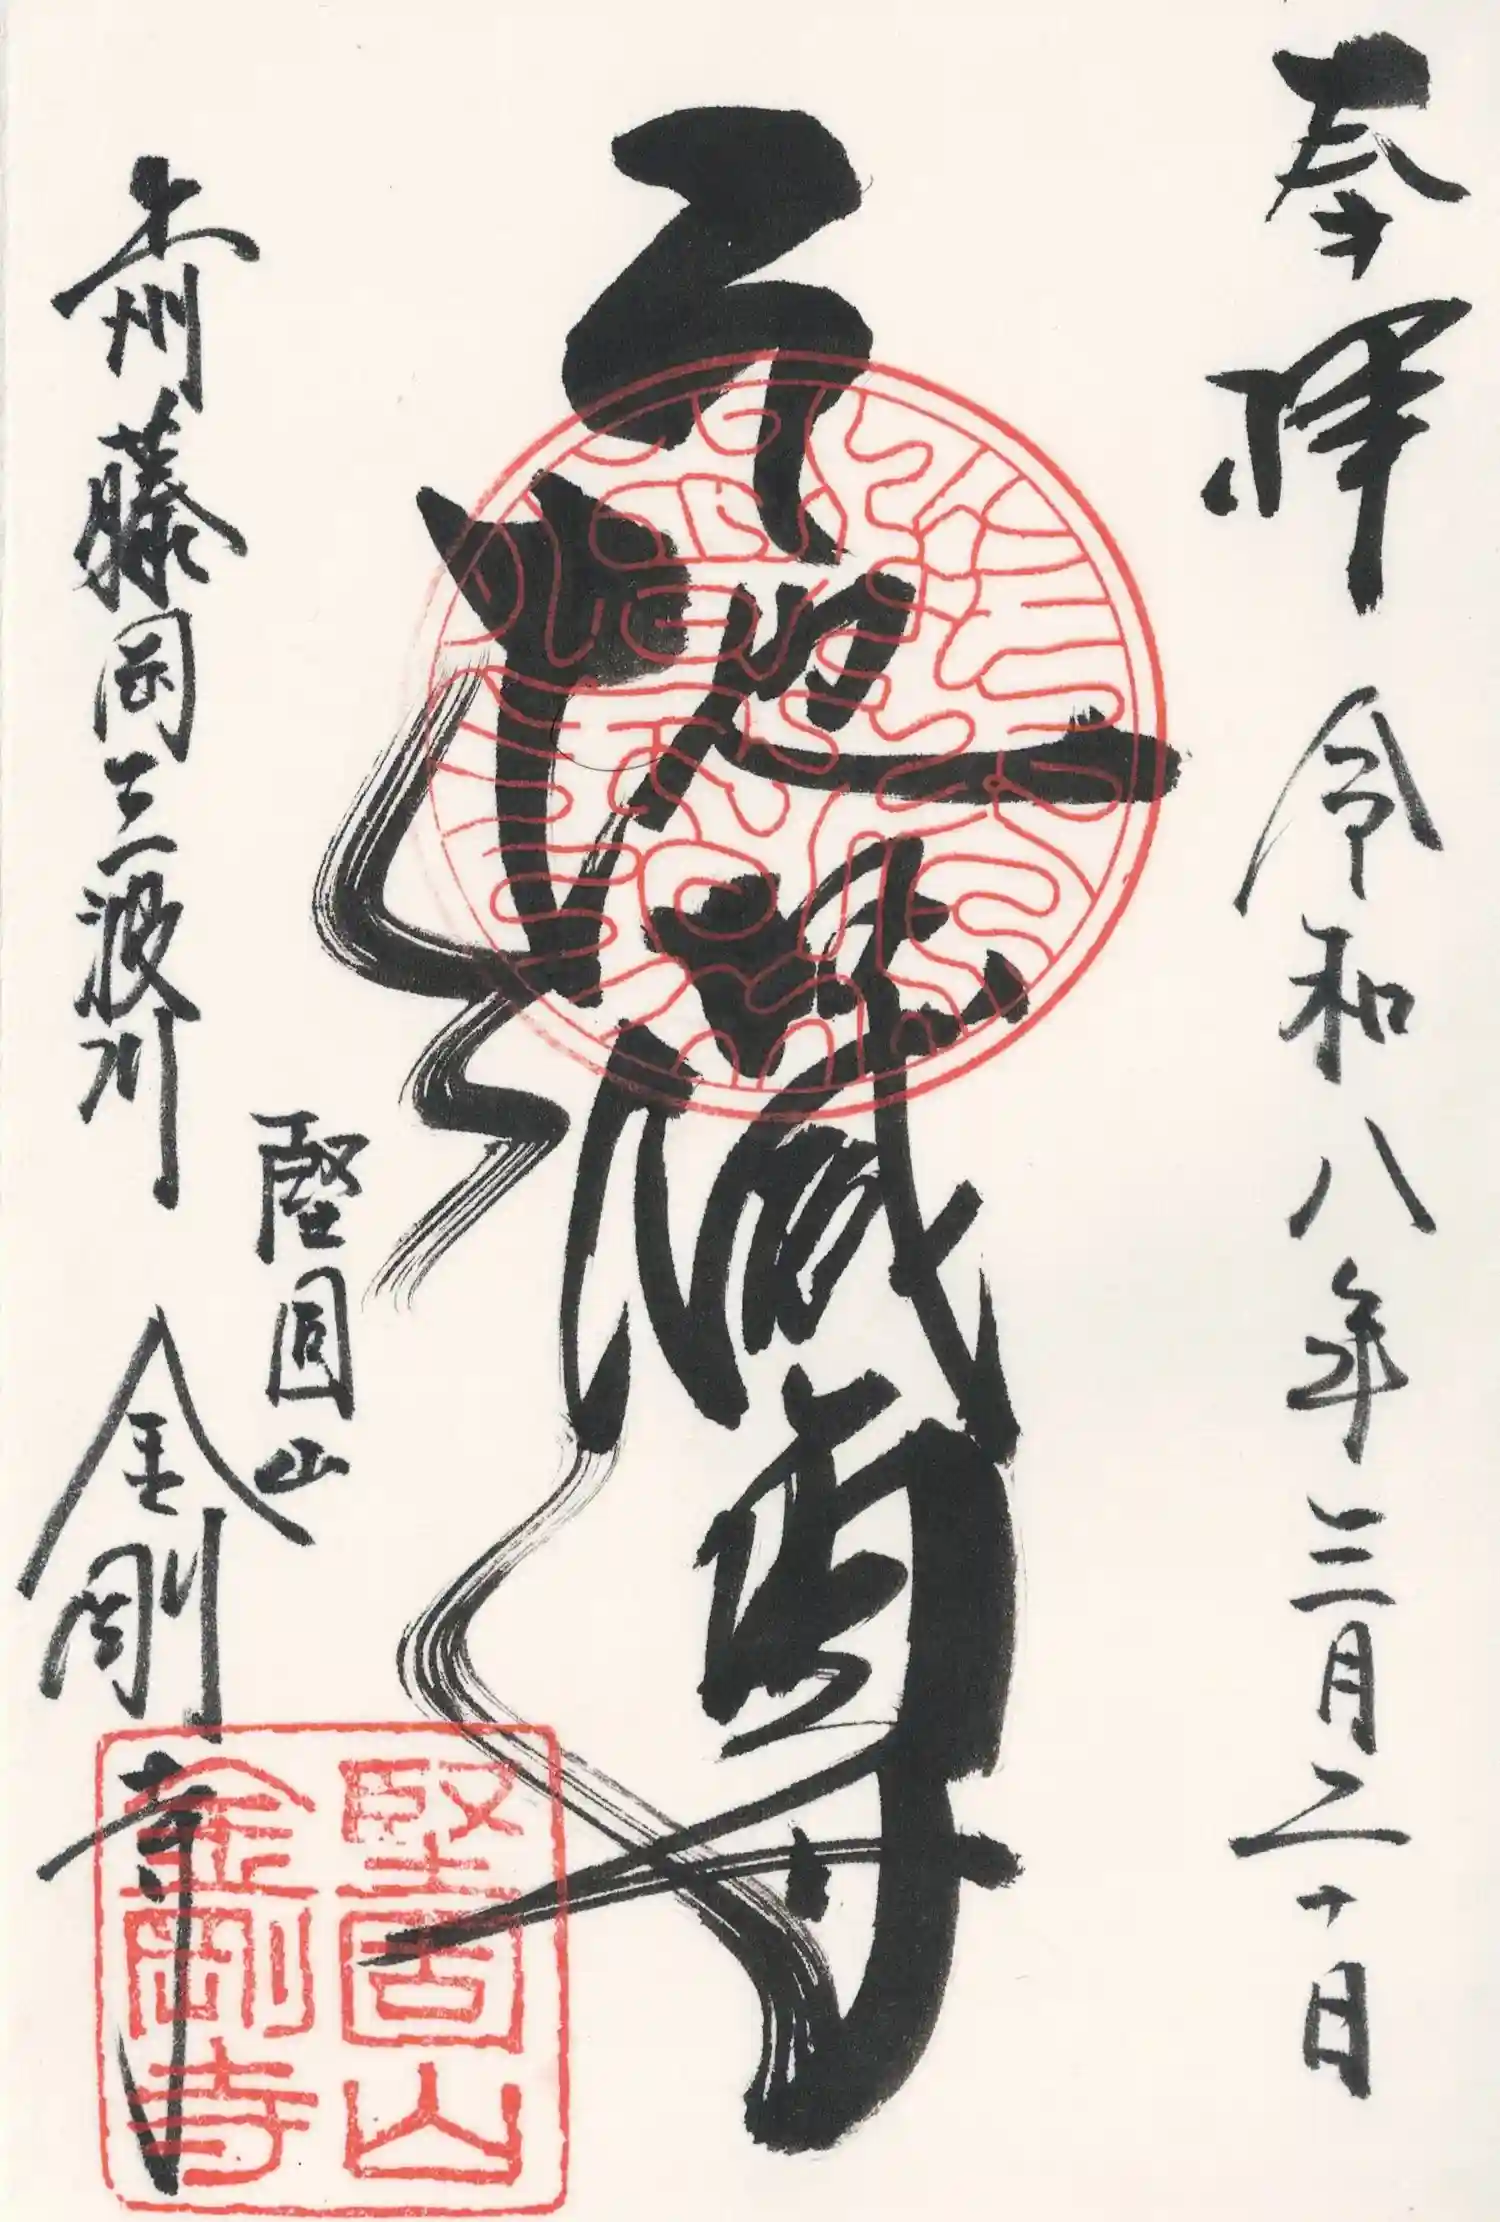 奉拝 令和八年三月二十日
地蔵尊
堅固山
上州藤岡三波川 金剛寺
堅固山
金剛寺